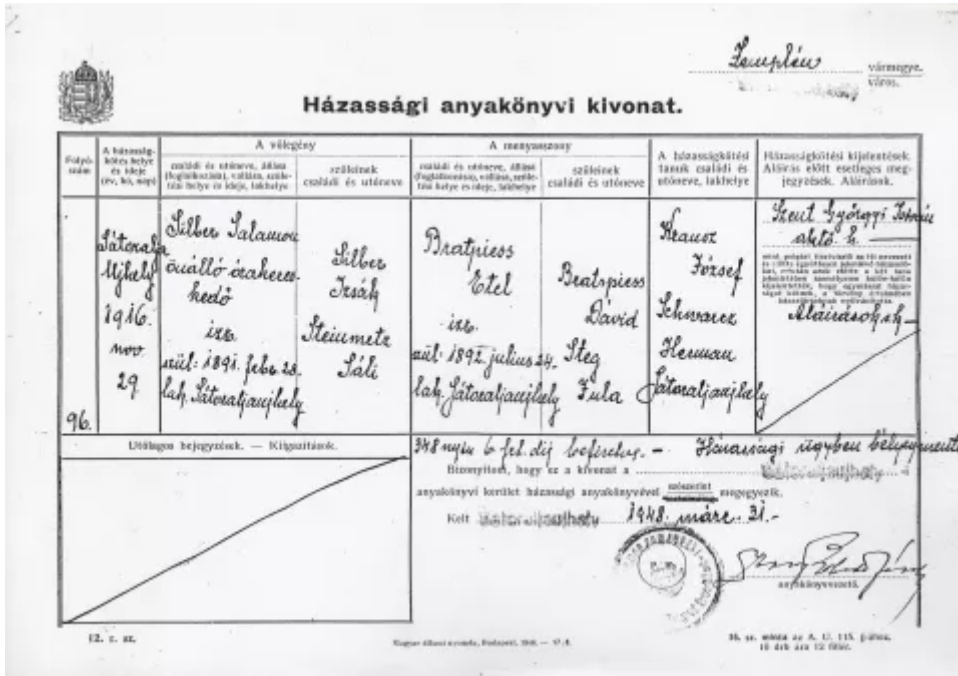 Zemplén vármegye.
város.
Házassági anyakönyvi kivonat.
Folyó-
szám
A házasság-
kötés helye
és ideje
(év, hó, nap)
A vőlegény
családi és utóneve, állása
(foglalkozása), vallása, szüle-
tési helye és ideje, lakhelye
szüleinek
családi és utóneve
A menyasszony
családi és utóneve, állása
(foglalkozása), vallása, szüle-
tési helye és ideje, lakhelye
szüleinek
családi és utóneve
A házasságkötési
tanuk családi és
utóneve, lakhelye
Házasságkötési kijelentések.
Aláírás előtt esetleges meg-
jegyzések. Aláírások.
96.
Sátoralja
Ujhely
1916.
nov.
29
Silber Salamon
önálló órakeres-
kedő
izr.
szül: 1891. febr. 28.
lak. Sátoraljaujhely
Silber
Izsák
Steinmetz
Sáli
Bratpiess
Etel
izr.
szül: 1892. julius 24.
lak. Sátoraljaujhely
Bratspiess
David
Steg
Fula
Krausz
József
Schwarcz
Herman
Sátoraljaujhely
Szent Györgyi István
Aláírások
Utólagos bejegyzések. — Kiigazítások.
348 nyár 6 fel. díj befizetve. — Házassági ügyben bélyegmentes
Bizonyítom, hogy ez a kivonat a Sátoraljaujhely
anyakönyvi kerület házassági anyakönyvével szószerint megegyezik.
Kelt Sátoraljaujhely 1948. márc. 31.-
anyakönyvvezető.
12. r. sz.
Magyar állami nyomda, Budapest,